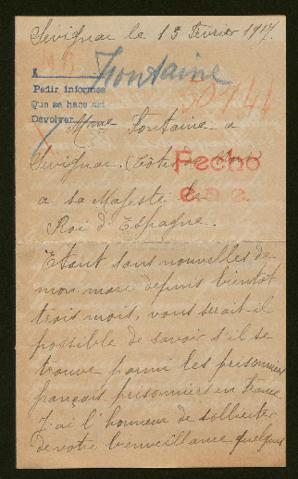 Sévignac le 15 Février 1917.
Fontaine
Pedir informes
Que se hace así
Devolver
50744
Mme Fontaine a
Sévignac (Côtes
Fecho
a sa Majesté le
Roi d'Espagne.
Etant sans nouvelles de
mon mari depuis bientôt
trois mois, vous serait-il
possible de savoir s'il se
trouve parmi les prisonniers
français prisonniers en
J'ai l'honneur de solliciter
de votre bienveillance quelques